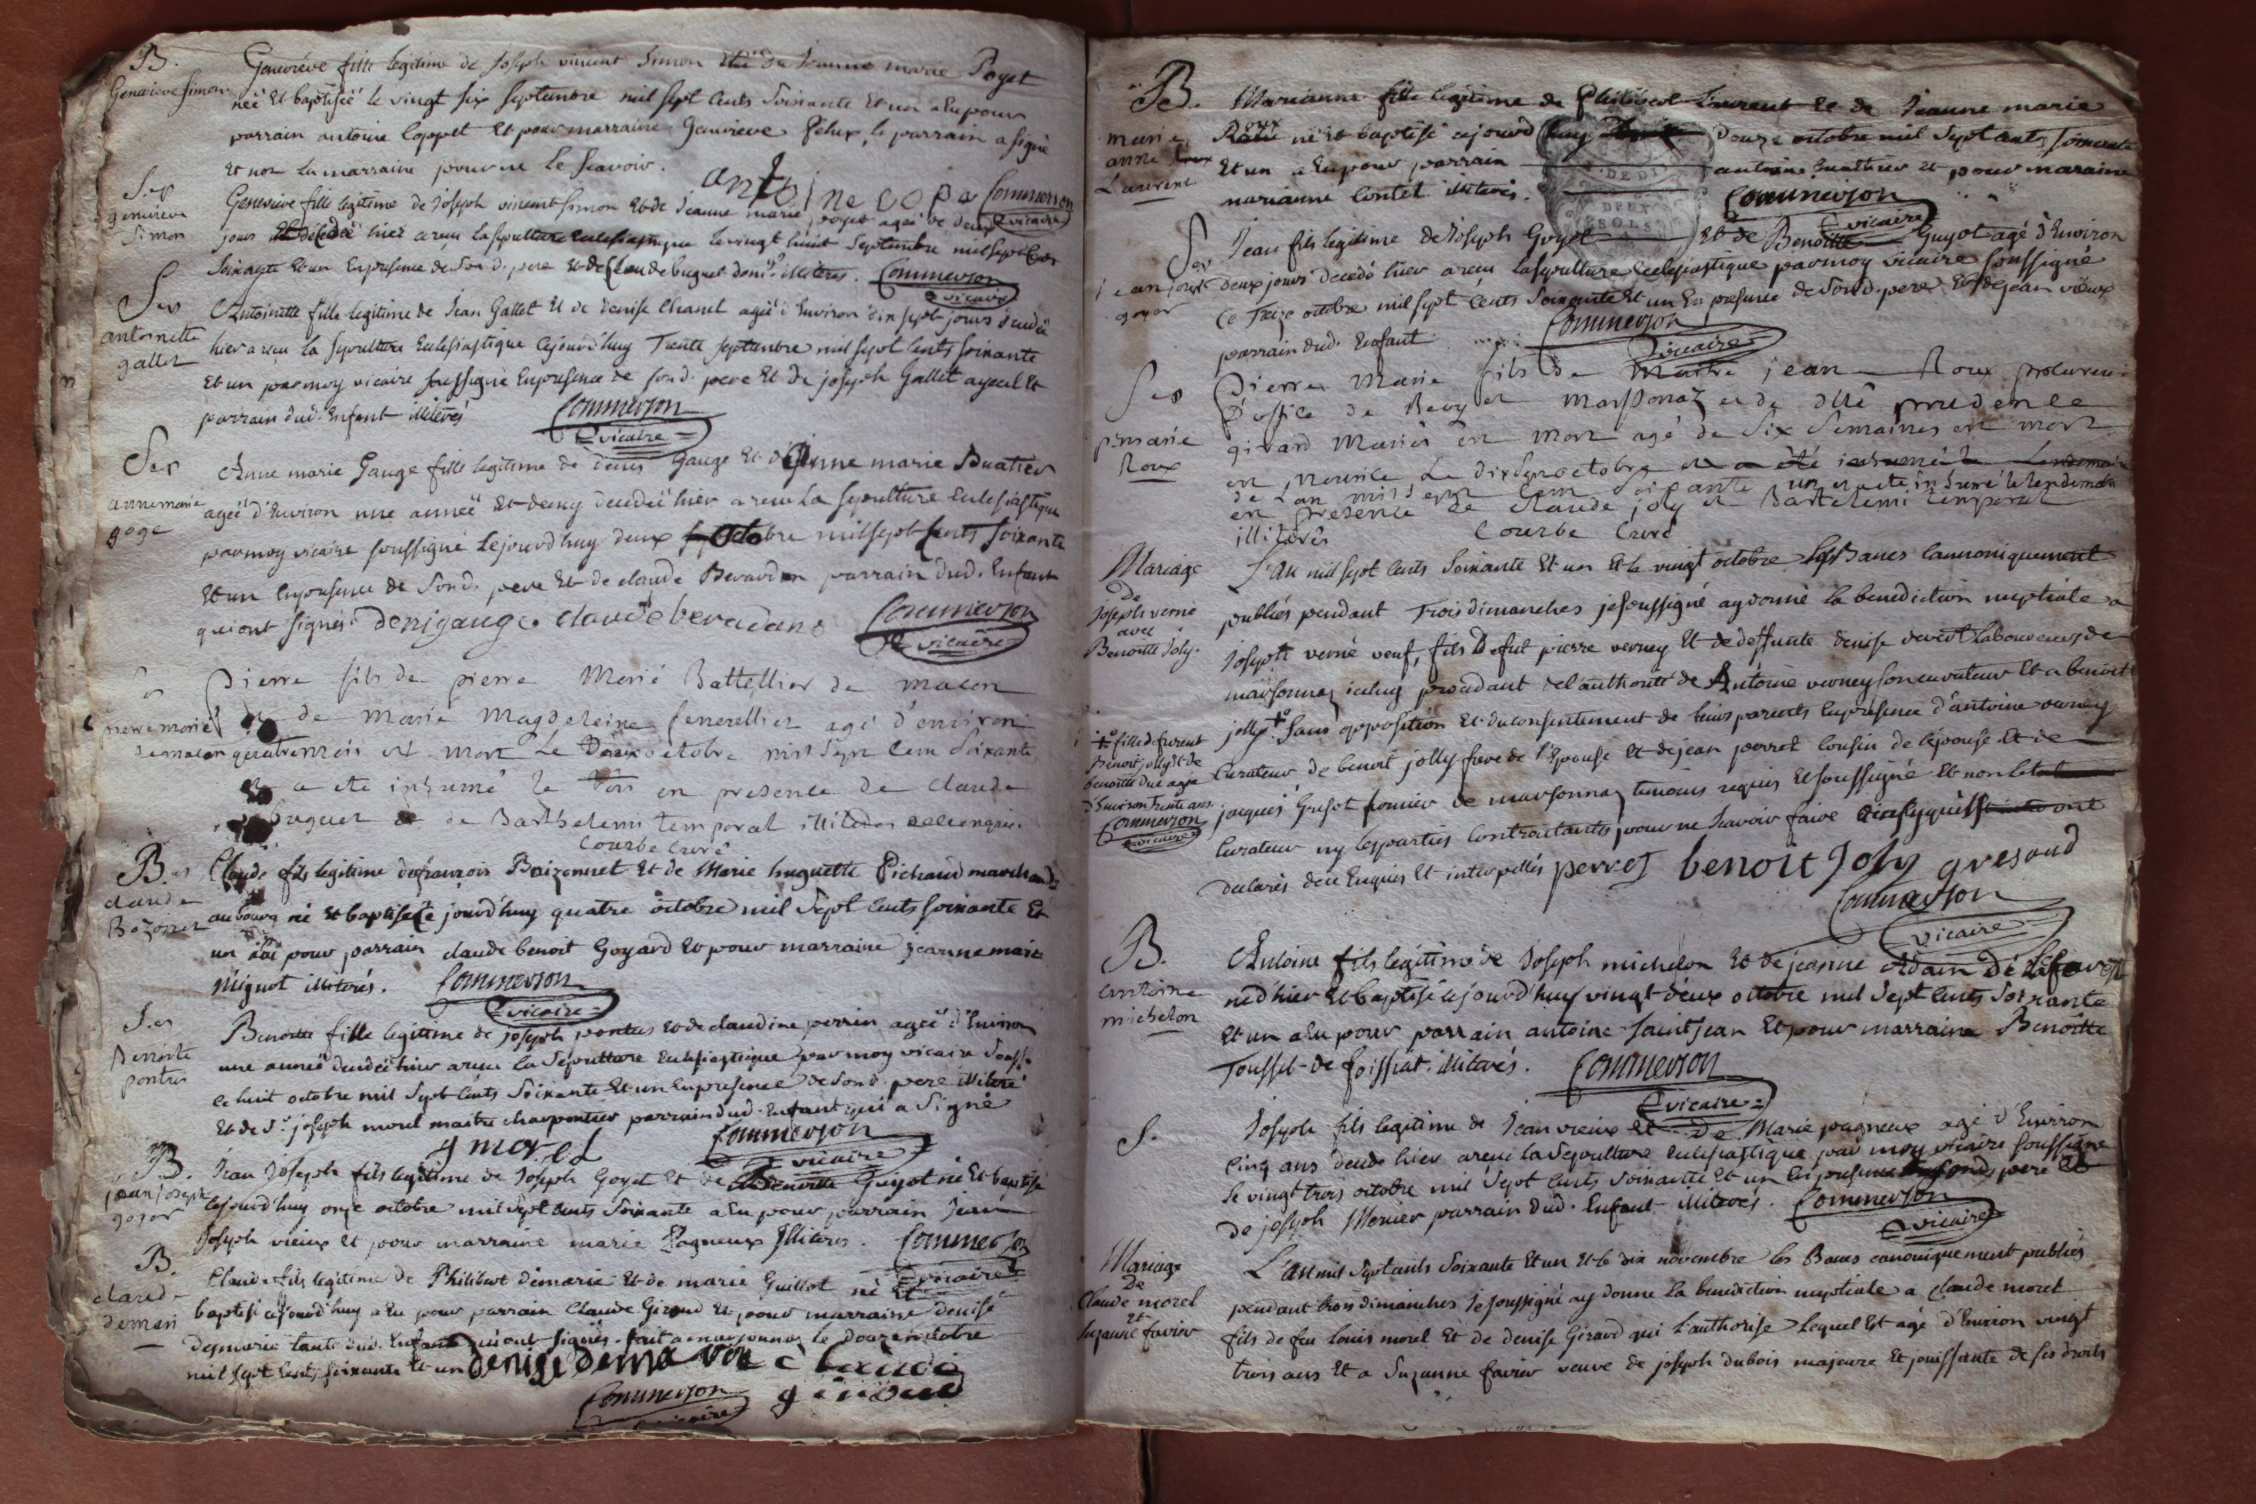 B.
Genevieve Simon
Genevieve fille legitime de Joseph vincent Simon Et de Jeanne marie Poyet
née Et baptisée le vingt six septembre mil sept Cents Soixante Et un a Eu pour
parrain antoine Coppet Et pour marraine Genevieve Felux, le parrain a signé
Et non la marraine pour ne le scavoir.
antoine copa Commerson
vicaire
Sep
genevieve
Simon
Genevieve fille legitime de Joseph vincent Simon Et de Jeanne marie poyet ageé de deux
jours decedeé hier a reçu la sepulture Eclesiastique le vingt huit Septembre mil sept Cents
Soixante Et un En presence de Son d. pere Et de Claude buguet dom.que illiterés. Commerson
vicaire
Sep
antoinette
gallet
Antoinette fille legitime de Jean Gallet Et de denise Chanel ageé d'Environ dix sept jours decedeé
hier a reçu la sepulture Eclesiastique Cejourd'huy Trente septembre mil sept Cents soixante
Et un par moy vicaire soussigné En presence de son d. pere Et de joseph Gallet ayeul Et
parrain dud. Enfant illiterés
Commerson
vicaire
Sep
anne marie
goge
Anne marie Gauge fille legitime de denis Gauge Et d'Anne marie Buatier
ageé d'Environ une anneé Et demy decedeé hier a reçu La sepulture Eclesiastique
par moy vicaire soussigné Cejourd'huy deux octobre mil sept Cents soixante
Et un En presence de Son d. pere Et de claude Berardan parrain dud. Enfant
qui ont signés. denigauge claude beradano Commerson
vicaire
pierre morié
de macon
Pierre fils de pierre Morié Battellier de macon
de Marie Magdeleine fenerellier agé d'environ
quatre mois est mort Le Deux octobre mil sept Cent Soixante
a eté inhumé le trois en presence de claude
buguet et de Barthelemi temporal illiterés
Courbe Curé
B.
claude
Bozonnet
Claude fils legitime de françois Boizonnet Et de Marie huguette Pichaud marchands
au bourg né Et baptisé Ce jourd'huy quatre octobre mil Sept Cents soixante Et
un a Eu pour parrain claude benoit Goyard Et pour marraine jeanne marie
Mignot illiterés. Commerson
vicaire
Sep
Benoite
pontus
Benoitte fille legitime de joseph pontus Et de claudine perrin ageé d'Environ
une anneé decedeé hier a reçu la Sepulture Eclesiastique par moy vicaire Souss.
Ce huit octobre mil Sept Cents Soixante Et un En presence de Son d. pere illiteré
Et de Sr. joseph morel maitre charpentier parrain dud. Enfant qui a Signé
J morel Commerson
vicaire
B.
jean joseph
goyet
Jean Joseph fils legitime de Joseph Goyet Et de Benoitte Guyot né Et baptisé
Cejourd'huy onze octobre mil Sept Cents Soixante a Eu pour parrain Jean
Joseph vieux Et pour marraine marie Pagneux Illiteres. Commerson
vicaire
B.
claude
demari
Claude fils legitime de Philibert demarie Et de marie Guillot né Et
baptisé cejourd'huy a Eu pour parrain Claude Giroud Et pour marraine denise
demarie tante dud. Enfant qui ont signés. fait a marsonnas le douze octobre
mil sept Cents soixante Et un denise demria
giroud
Commerson
vicaire
B.
marie
anne
Laurent
Marianne fille legitime de Philibert Laurent Et de Jeanne marie
Roux née Et baptisé cejourd'huy Douze octobre mil Sept Cents soixante
Et un a Eu pour parrain antoine Gauthier Et pour maraine
marianne Contet illiterés. Commerson
vicaire
DEUX
SOLS
Sep
jean josept
goyet
Jean fils legitime de Joseph Goyet Et de Benoitte Guyot agé d'Environ
deux jours decedé hier a reçu la sepulture Eclesiastique par moy vicaire soussigné
Ce Treize octobre mil sept Cents Soixante Et un En presence de Son d. pere Et de jean vieux
parrain dud. Enfant Commerson
vicaire
Sep
p. marie
Roux
Pierre Marie fils de Maitre jean Roux procureur
D'office de Bevy et Marsonaz et de dlle prudence
girard Mariés est mort agé de Six Semaines est mort
en nourice Le dix Sept octobre
de L'an mil sept Cent Soixante un et eté inhumé le lendemain
en presence de Claude joly et Bartelemi temporal
illiterés Courbe Curé
Mariage
De
Joseph verné
avec
Benoitte Joly.
L'an mil sept Cents Soixante Et un Et le vingt octobre les Bancs cannoniquement
publiés pendant Trois dimanches je soussigné ay donné la benediction nuptiale a
Joseph verné veuf, fils De fut pierre verney Et de deffunte denise devert Laboureurs de
marsonnaz iceluy procedant de l'authorité de Antoine verney son curateur Et a benoitte
jolly Sans opposition Et du consentement de leurs parents En presence d'antoine verney
Curateur de benoit jolly frere de l'Epouse Et de jean perret Cousin de l'epouse Et de
jacques Grésot fermier de marsonnaz temoins requis Et soussignés Et non led.
Curateur ny les parties Contractantes pour ne Scavoir faire ont
declarés de ce Enquis Et interpellés perret benoit Joly gresaud
Commerson
vicaire
fille de furent
Benoit jolly Et de
benoitte duc ageé
d'Environ trente ans.
Commerson
vicaire
B.
antoine
michelon
Antoine fils legitime de Joseph michelon Et de jeanne Adam de
né d'hier Et baptisé cejourd'huy vingt deux octobre mil Sept Cents Soixante
Et un a Eu pour parrain antoine Saint Jean Et pour marraine Benoitte
Tousset de foissiat. illiterés. Commerson
vicaire
S.
Joseph fils legitime de Jean vieux Et de Marie pagneux agé d'Environ
Cinq ans decedé hier a reçu la Sepulture Eclesiastique par moy vicaire soussigné
le vingt trois octobre mil Sept Cents soixante Et un En presence de son d. pere Et
de joseph Monier parrain dud. Enfant illiterés. Commerson
vicaire
Mariage
De
Claude morel
Et
Suzanne favier
L'an mil Sept Cents Soixante Et un Et le dix novembre les Bancs canoniquement publiés
pendant trois dimanches Je soussigné ay donné la benediction nuptiale a claude morel
fils de feu Louis morel Et de denise Giraud qui l'authorise Lequel Est agé d'Environ vingt
trois ans Et a Suzanne favier veuve de joseph dubois majeure Et jouissante de ses droits